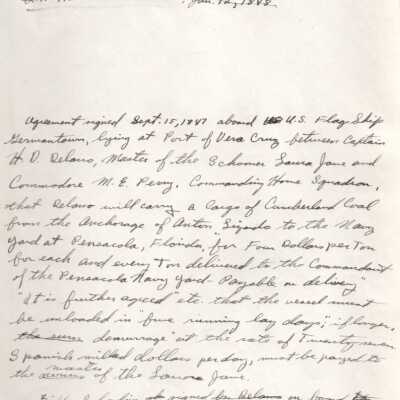 Jan. 12, 1848.
Agreement signed Sept. 15, 1847 aboard U.S. Flag Ship
Germantown, lying at Port of Vera Cruz between Captain
H. D. Delano, Master of the Schooner Laura Jane and
Commodore M. C. Perry, Commanding Home Squadron,
that Delano will carry a Cargo of Cumberland Coal
from the Anchorage of Anton Lizardo to the Navy
Yard at Pensacola, Florida, "for Four Dollars per Ton
for each and every Ton delivered to the Commandant
of the Pensacola Navy Yard. Payable on delivery"
"It is further agreed" etc. that the vessel must
be unloaded in "five running lay days"; if longer,
the same demurrage "at the rate of Twenty seven
Spanish milled dollars per day, must be paid to
master
the owners of the Laura Jane.
signed by Delano on board